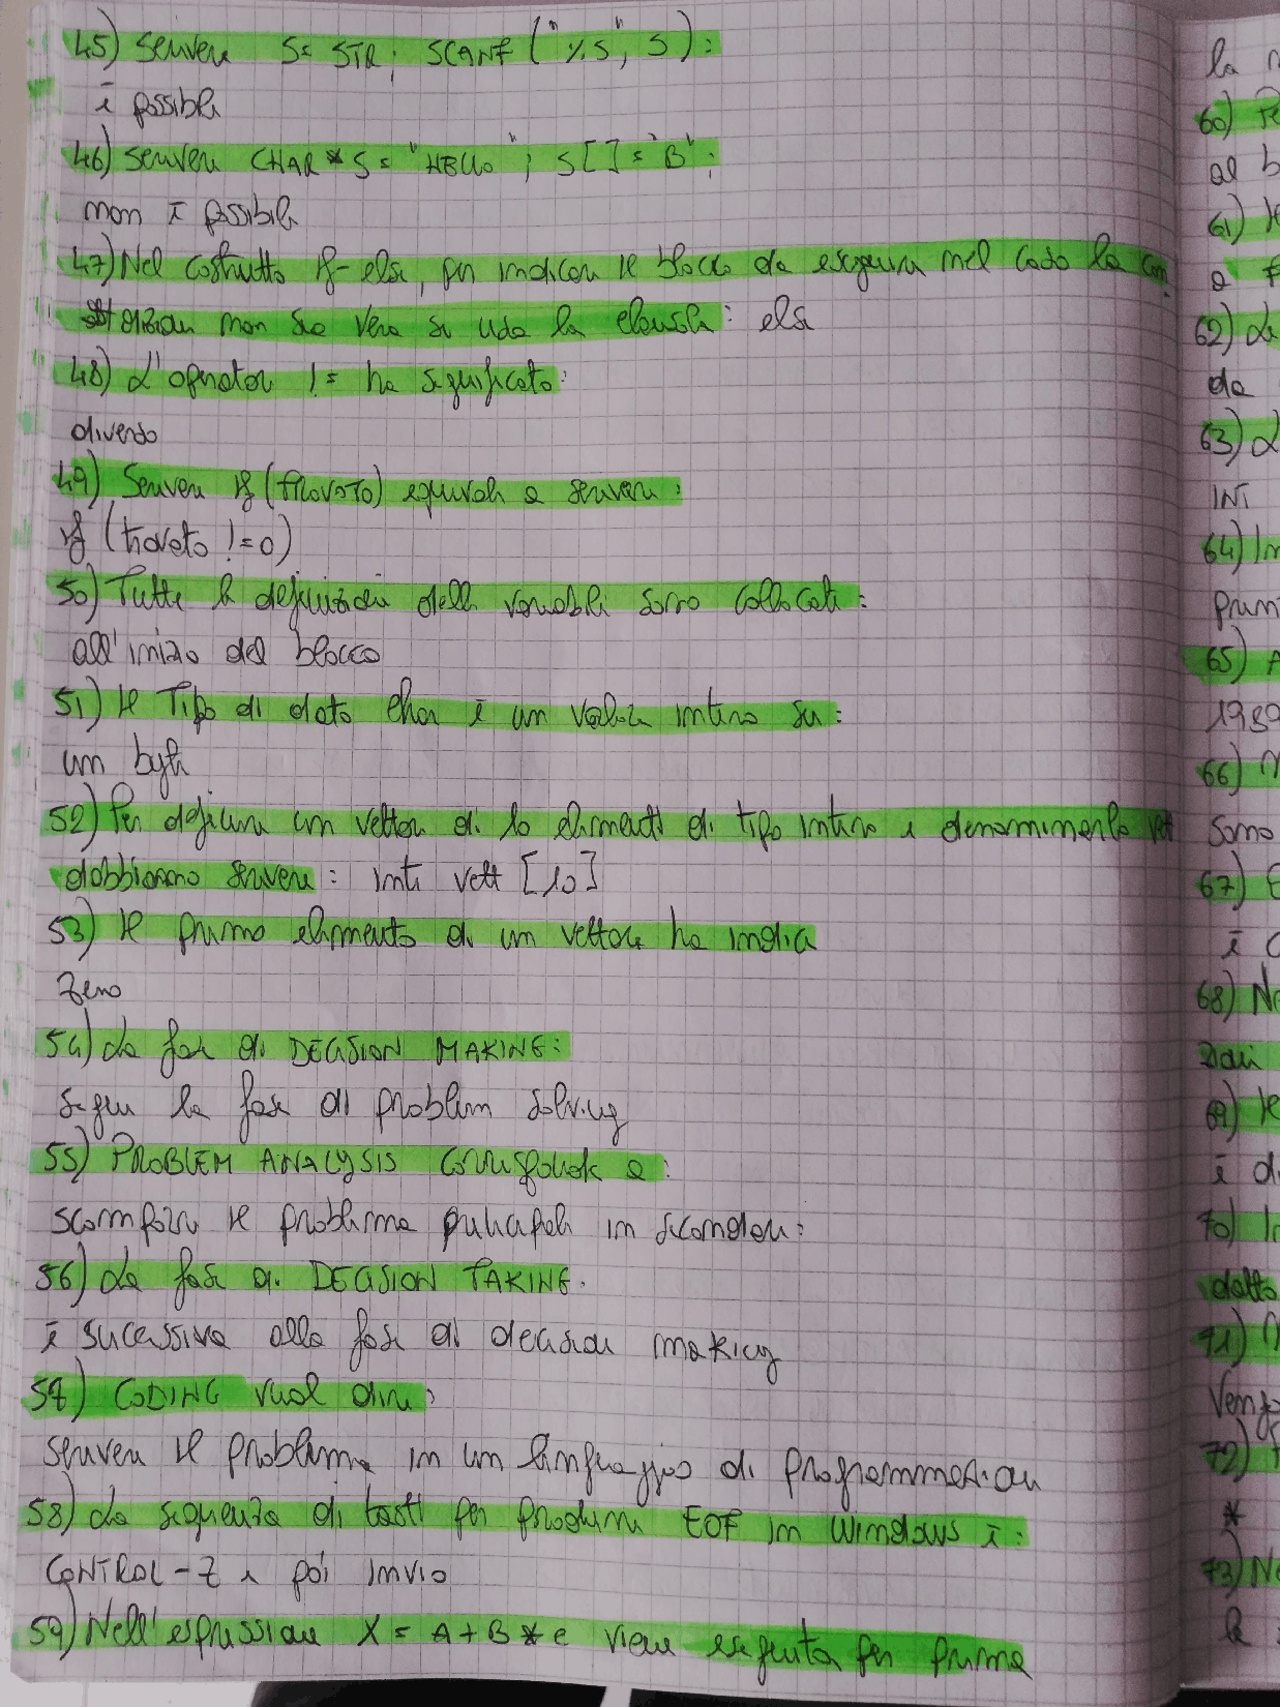 45) scrivere S= STR; SCANF ("%S", S):
è possibile
46) scrivere CHAR * S = "HELLO"; S[] = "B";
non è possibile
47) Nel costrutto if-else, per indicare il blocco da eseguire nel caso la con
dizione non sia vera si usa la clausola: else
48) L'operatore != ha significato:
diverso
49) Scrivere if (trovato) equivale a scrivere:
if (trovato != 0)
50) Tutte le definizioni delle variabili sono collocate:
all'inizio del blocco
51) Il Tipo di dato char è un valore intero su:
un byte
52) Per definire un vettore di 10 elementi di tipo intero e denominimenlo vett
dobbiamo scrivere: int vett [10]
53) Il primo elemento di un vettore ha indice
zero
54) La fase di DECISION MAKING:
segue la fase di problem solving
55) PROBLEM ANALYSIS corrisponde a:
scomporre il problema principale in secondari:
56) La fase di DECISION TAKING.
è sucessiva alla fase di decision making
57) CODING vuol dire:
scrivere il problema in un linguaggio di programmazione
58) La sequenza di tasti per produrre EOF in Windows è:
CONTROL-Z e poi invio
59) Nell'espressione X = A + B * C viene eseguita per prima
la
60)
al b
61) Il
a f
62) La
da
63) L
INT
64) In
prim
65) A
1989
66)
sono
67) E
è c
68) Ne
zioni
69) Il
è di
70) In
detto
71)
Veng
72)
*
73) Ne